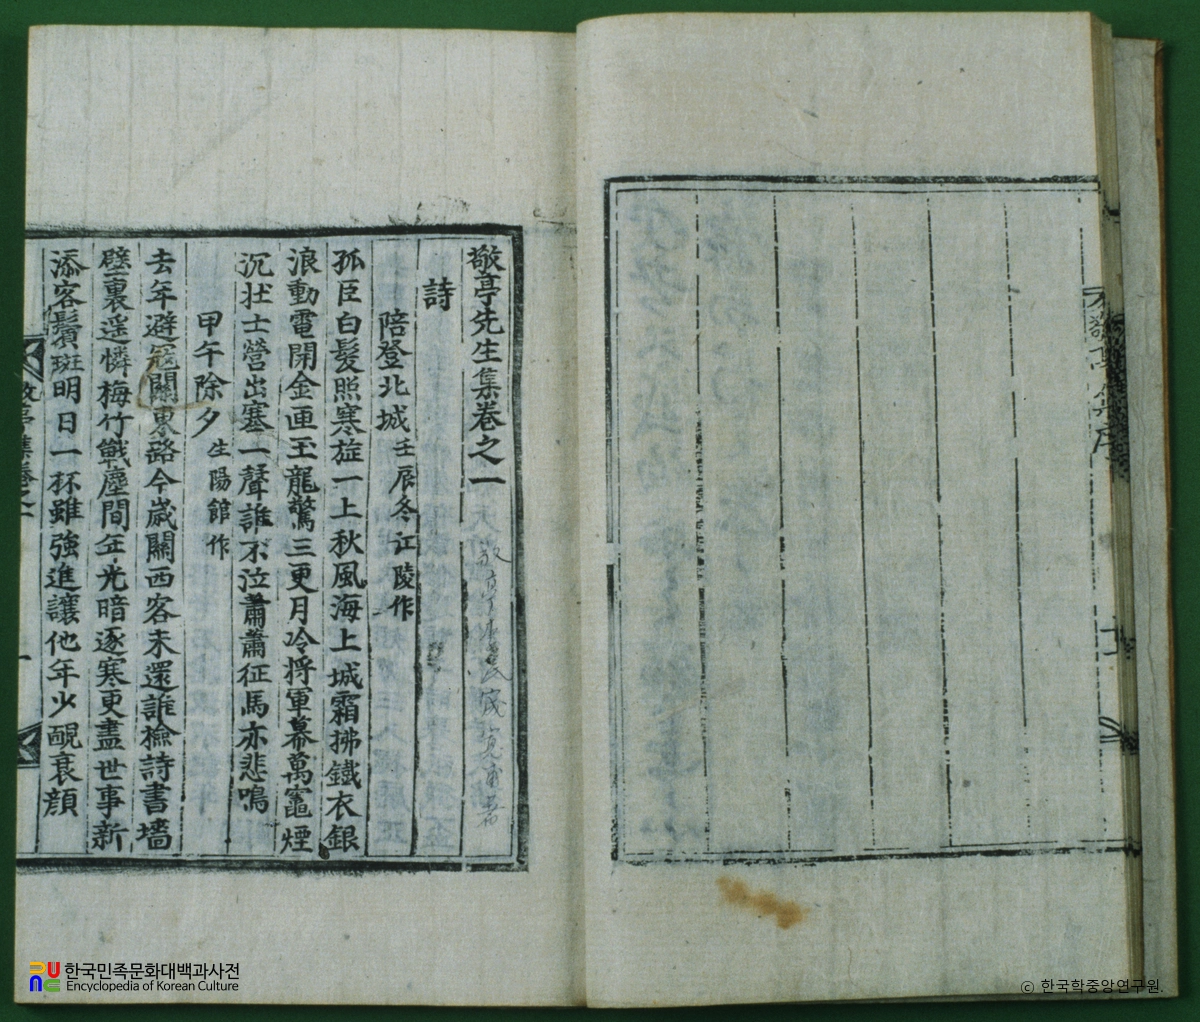 敬亭先生集卷之一
詩
陪登北城 壬辰冬江陵作
孤臣白髮照寒旌一上秋風海上城霜拂鐵衣銀
浪動電開金匣玉龍驚三更月冷将軍幕萬竈煙
沉壮士營出塞一聲誰不泣蕭蕭征馬亦悲鳴
甲午除夕 生陽館作
去年避冦關東路今歲關西客未還誰檢詩書墻
壁裏遥憐梅竹戰塵間年光暗逐寒更盡世事新
添客鬢斑明日一杯雖強進讓他年少靦衰顔
敬亭集卷之一
한국민족문화대백과사전
Encyclopedia of Korean Culture
ⓒ 한국학중앙연구원.